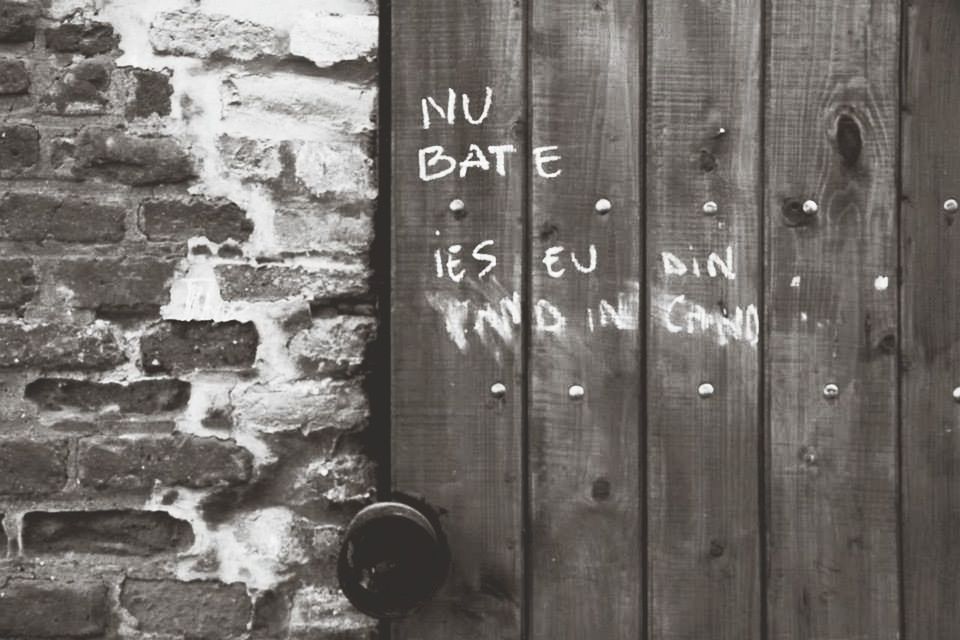 NU
BATE
iES EU DiN
CAND iN CAND